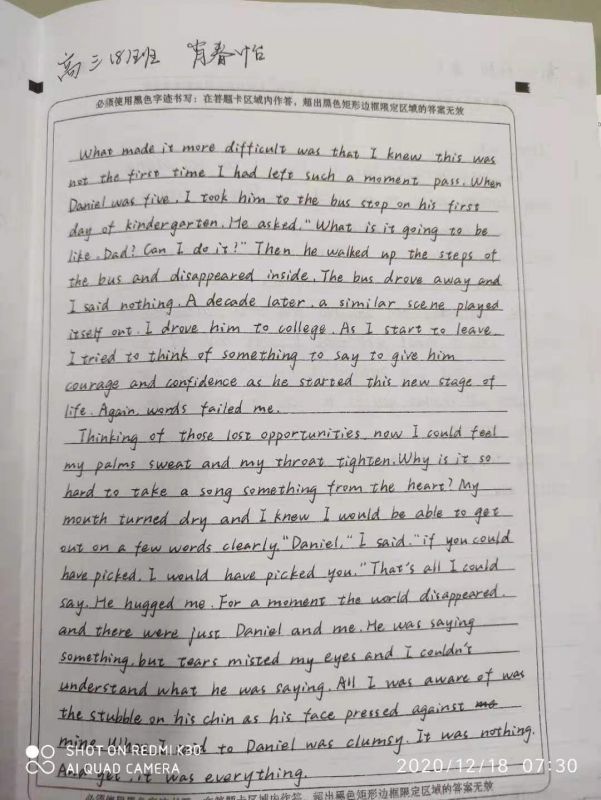 高三18班 肖春怡
必须使用黑色字迹书写；在答题卡区域内作答，超出黑色矩形边框限定区域的答案无效
What made it more difficult was that I knew this was
not the first time I had left such a moment pass. When
Daniel was five, I took him to the bus stop on his first
day of kindergarten. He asked, "What is it going to be
like, Dad? Can I do it?" Then he walked up the steps of
the bus and disappeared inside. The bus drove away and
I said nothing. A decade later, a similar scene played
itself out. I drove him to college. As I start to leave,
I tried to think of something to say to give him
courage and confidence as he started this new stage of
life. Again, words failed me.
Thinking of those lost opportunities, now I could feel
my palms sweat and my throat tighten. Why is it so
hard to take a song something from the heart? My
mouth turned dry and I knew I would be able to get
out on a few words clearly. "Daniel," I said. "if you could
have picked, I would have picked you." That's all I could
say. He hugged me. For a moment the world disappeared,
and there were just Daniel and me. He was saying
something, but tears misted my eyes and I couldn't
understand what he was saying. All I was aware of was
the stubble on his chin as his face pressed against me
mine. What I to Daniel was clumsy. It was nothing.
And yet, it was everything.
SHOT ON REDMI K30
AI QUAD CAMERA
2020/12/18 07:30
在答题卡区域内作答，超出黑色矩形边框限定区域的答案无效